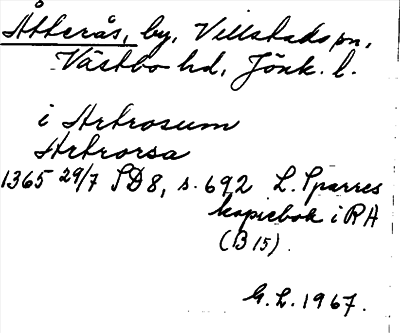 Åtterås, by, Villstads sn,
Västbo hd, Jönk. l.
i Artrosum
Artrorsa
1365 29/7 SD 8, s. 692 L. Sparres
kopiebok i RA
(B 15).
G. L. 1967.